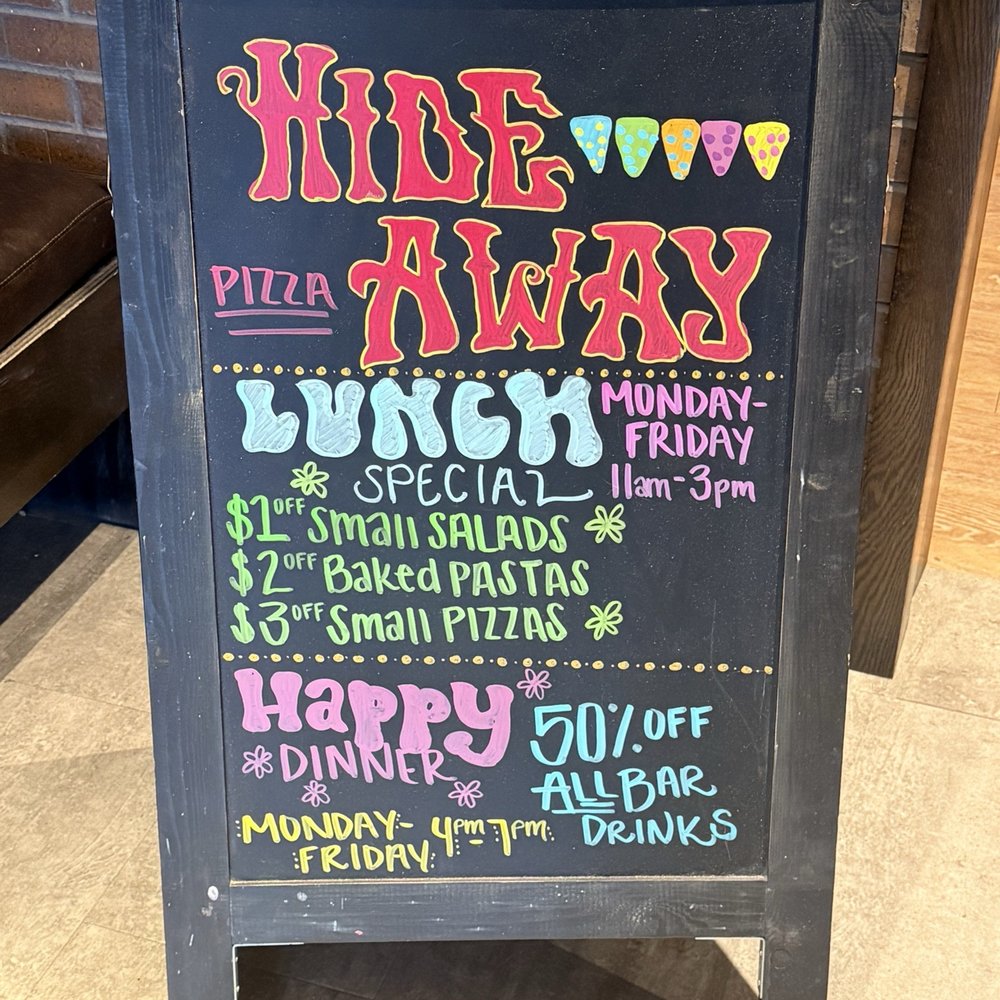 HIDE
AWAY
PIZZA
LUNCH
SPECIAL
MONDAY-
FRIDAY
11am-3pm
$1 OFF Small SALADS
$2 OFF Baked PASTAS
$3 OFF Small PIZZAS
Happy
DINNER
MONDAY-
FRIDAY
4pm-7pm
50% OFF
ALL BAR
DRINKS